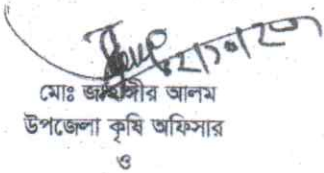 মোঃ জাহাঙ্গীর আলম
উপজেলা কৃষি অফিসার
ও